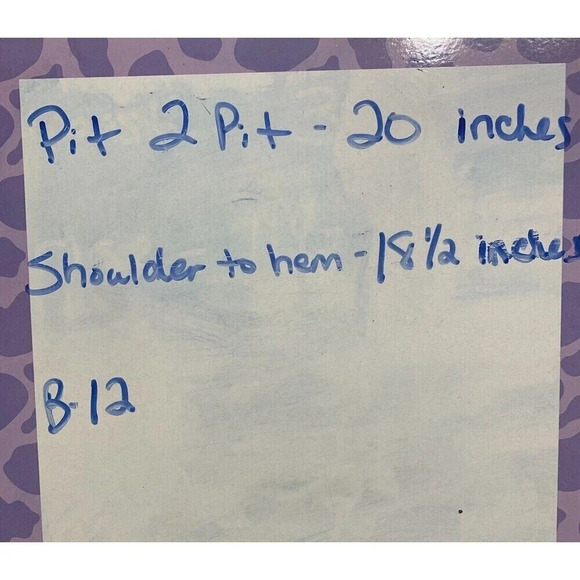 Pit 2 Pit - 20 inches
Shoulder to hem - 18 1/2 inches
B-12